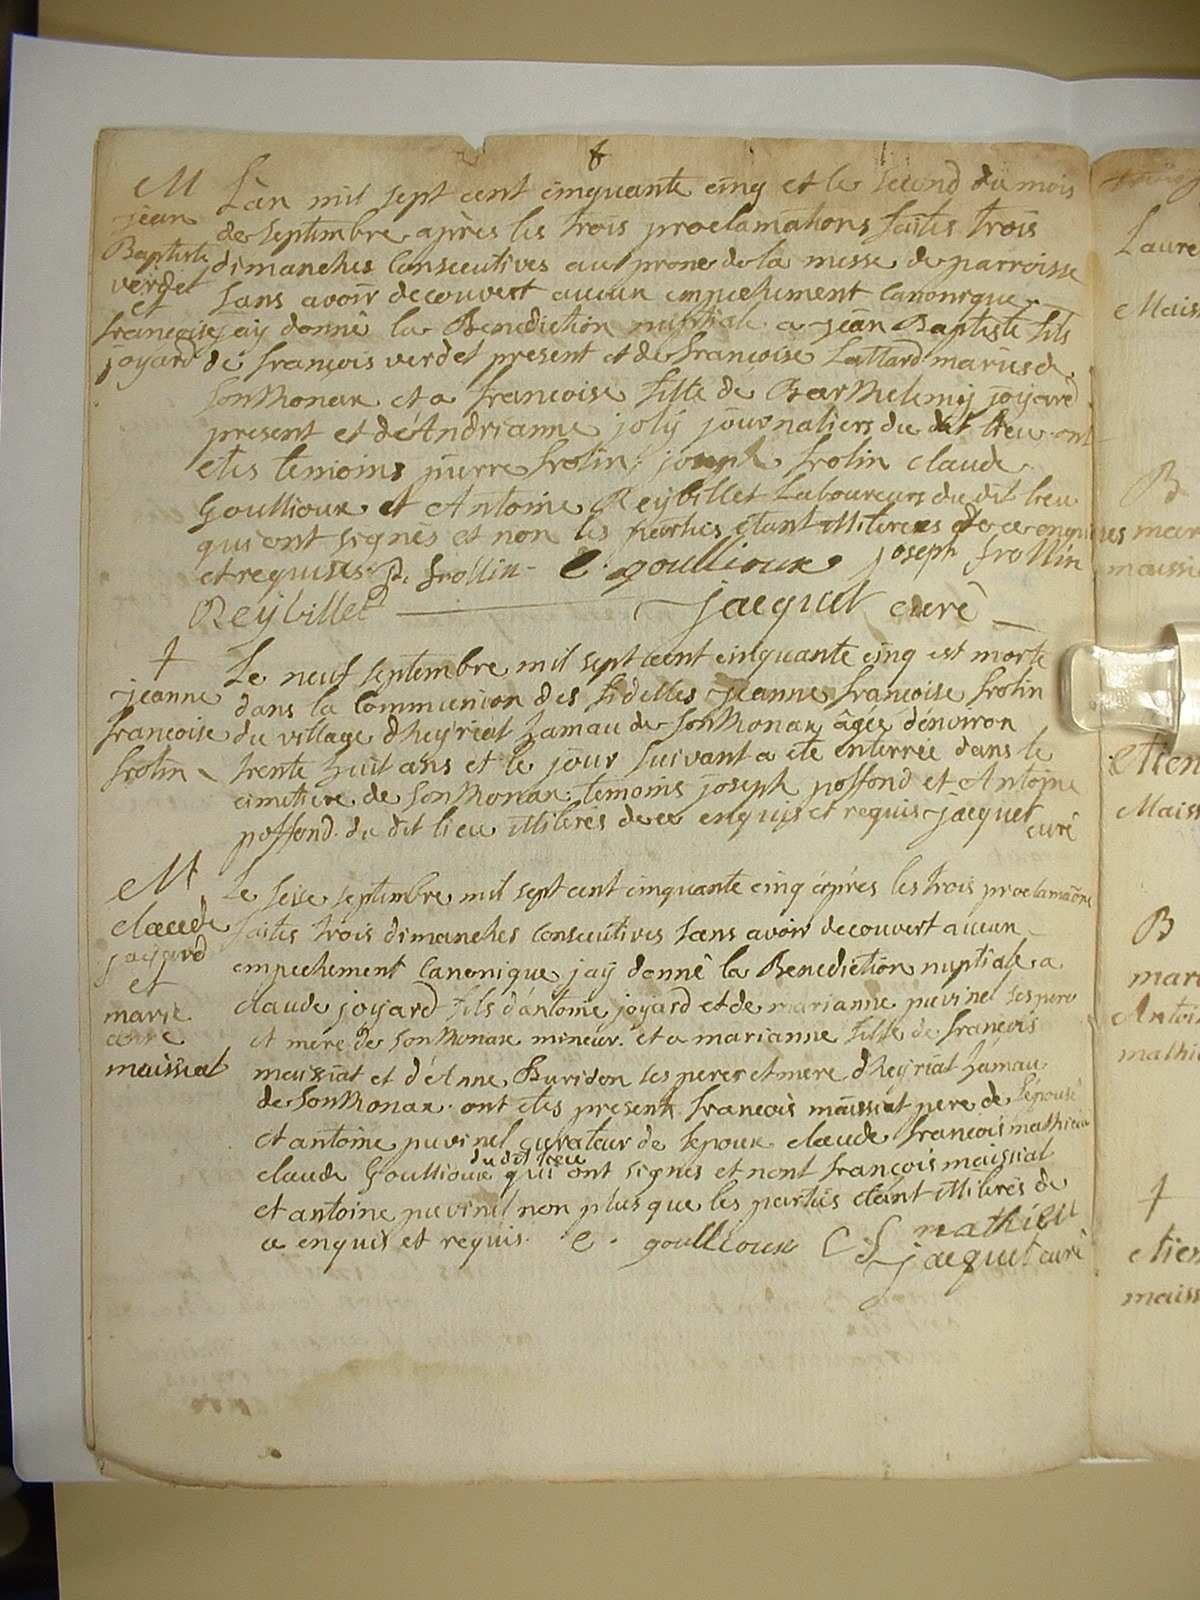 M
jean
Baptiste
verdet
et
francoise
joyard
L'an mil sept cent cinquante cinq et le second du mois
de septembre après les trois proclamations faites trois
dimanches consecutives au prone de la messe de parroisse
sans avoir decouvert aucun empechement canonique
j'ay donné la Benediction nuptiale a jean Baptiste fils
de françois verdet present et de francoise Lattard mariés de
sonthonax et a francoise fille de Barthelemy joyard
present et de Andrianne joly journaliers du dit lieu ont
etes temoins pierre frolin joseph frolin claude
Goullioux et Antoine Reybillet Laboureurs du dit lieu
qui ont signés et non les parties etant illiteres de ce enquises
et requises P. frollin c. goullioux joseph frollin
Reybillet jacquet curé
†
jeanne
francoise
frolin
Le neuf septembre mil sept cent cinquante cinq est morte
dans la Communion des fidelles jeanne francoise frolin
du village d'heyriat hamau de Sonthonax âgée d'environ
trente huit ans et le jour suivant a eté enterrée dans le
cimetiere de Sonthonax temoins joseph poffond et Antoine
poffond du dit lieu illiteres de ce enquis et requis jacquet curé
M
claude
joyard
et
marie
anne
maissiat
Le seise septembre mil sept cent cinquante cinq après les trois proclamaõns
faites trois dimanches consecutives sans avoir decouvert aucun
empechement canonique j'ay donné la Benediction nuptiale a
claude joyard fils d'antoine joyard et de marianne puvinel ses pere
et mere de Sonthonax mineur et a marianne fille de françois
maissiat et d'Anne Buridon ses pere et mere d'heyriat hamau
de Sonthonax ont etes present françois maissiat pere de l'épouse
et antoine puvinel curateur de l'epoux claude francois mathieu
claude Goullioux du dit lieu qui ont signes et nont françois maissiat
et antoine puvinel non plus que les parties etant illiteres de
ce enquis et requis c. goullioux C f mathieu
jacquet curé
Laure
Maiss
B
mar
maissi
etien
Maiss
B
mar
Antoi
mathi
†
etien
maiss